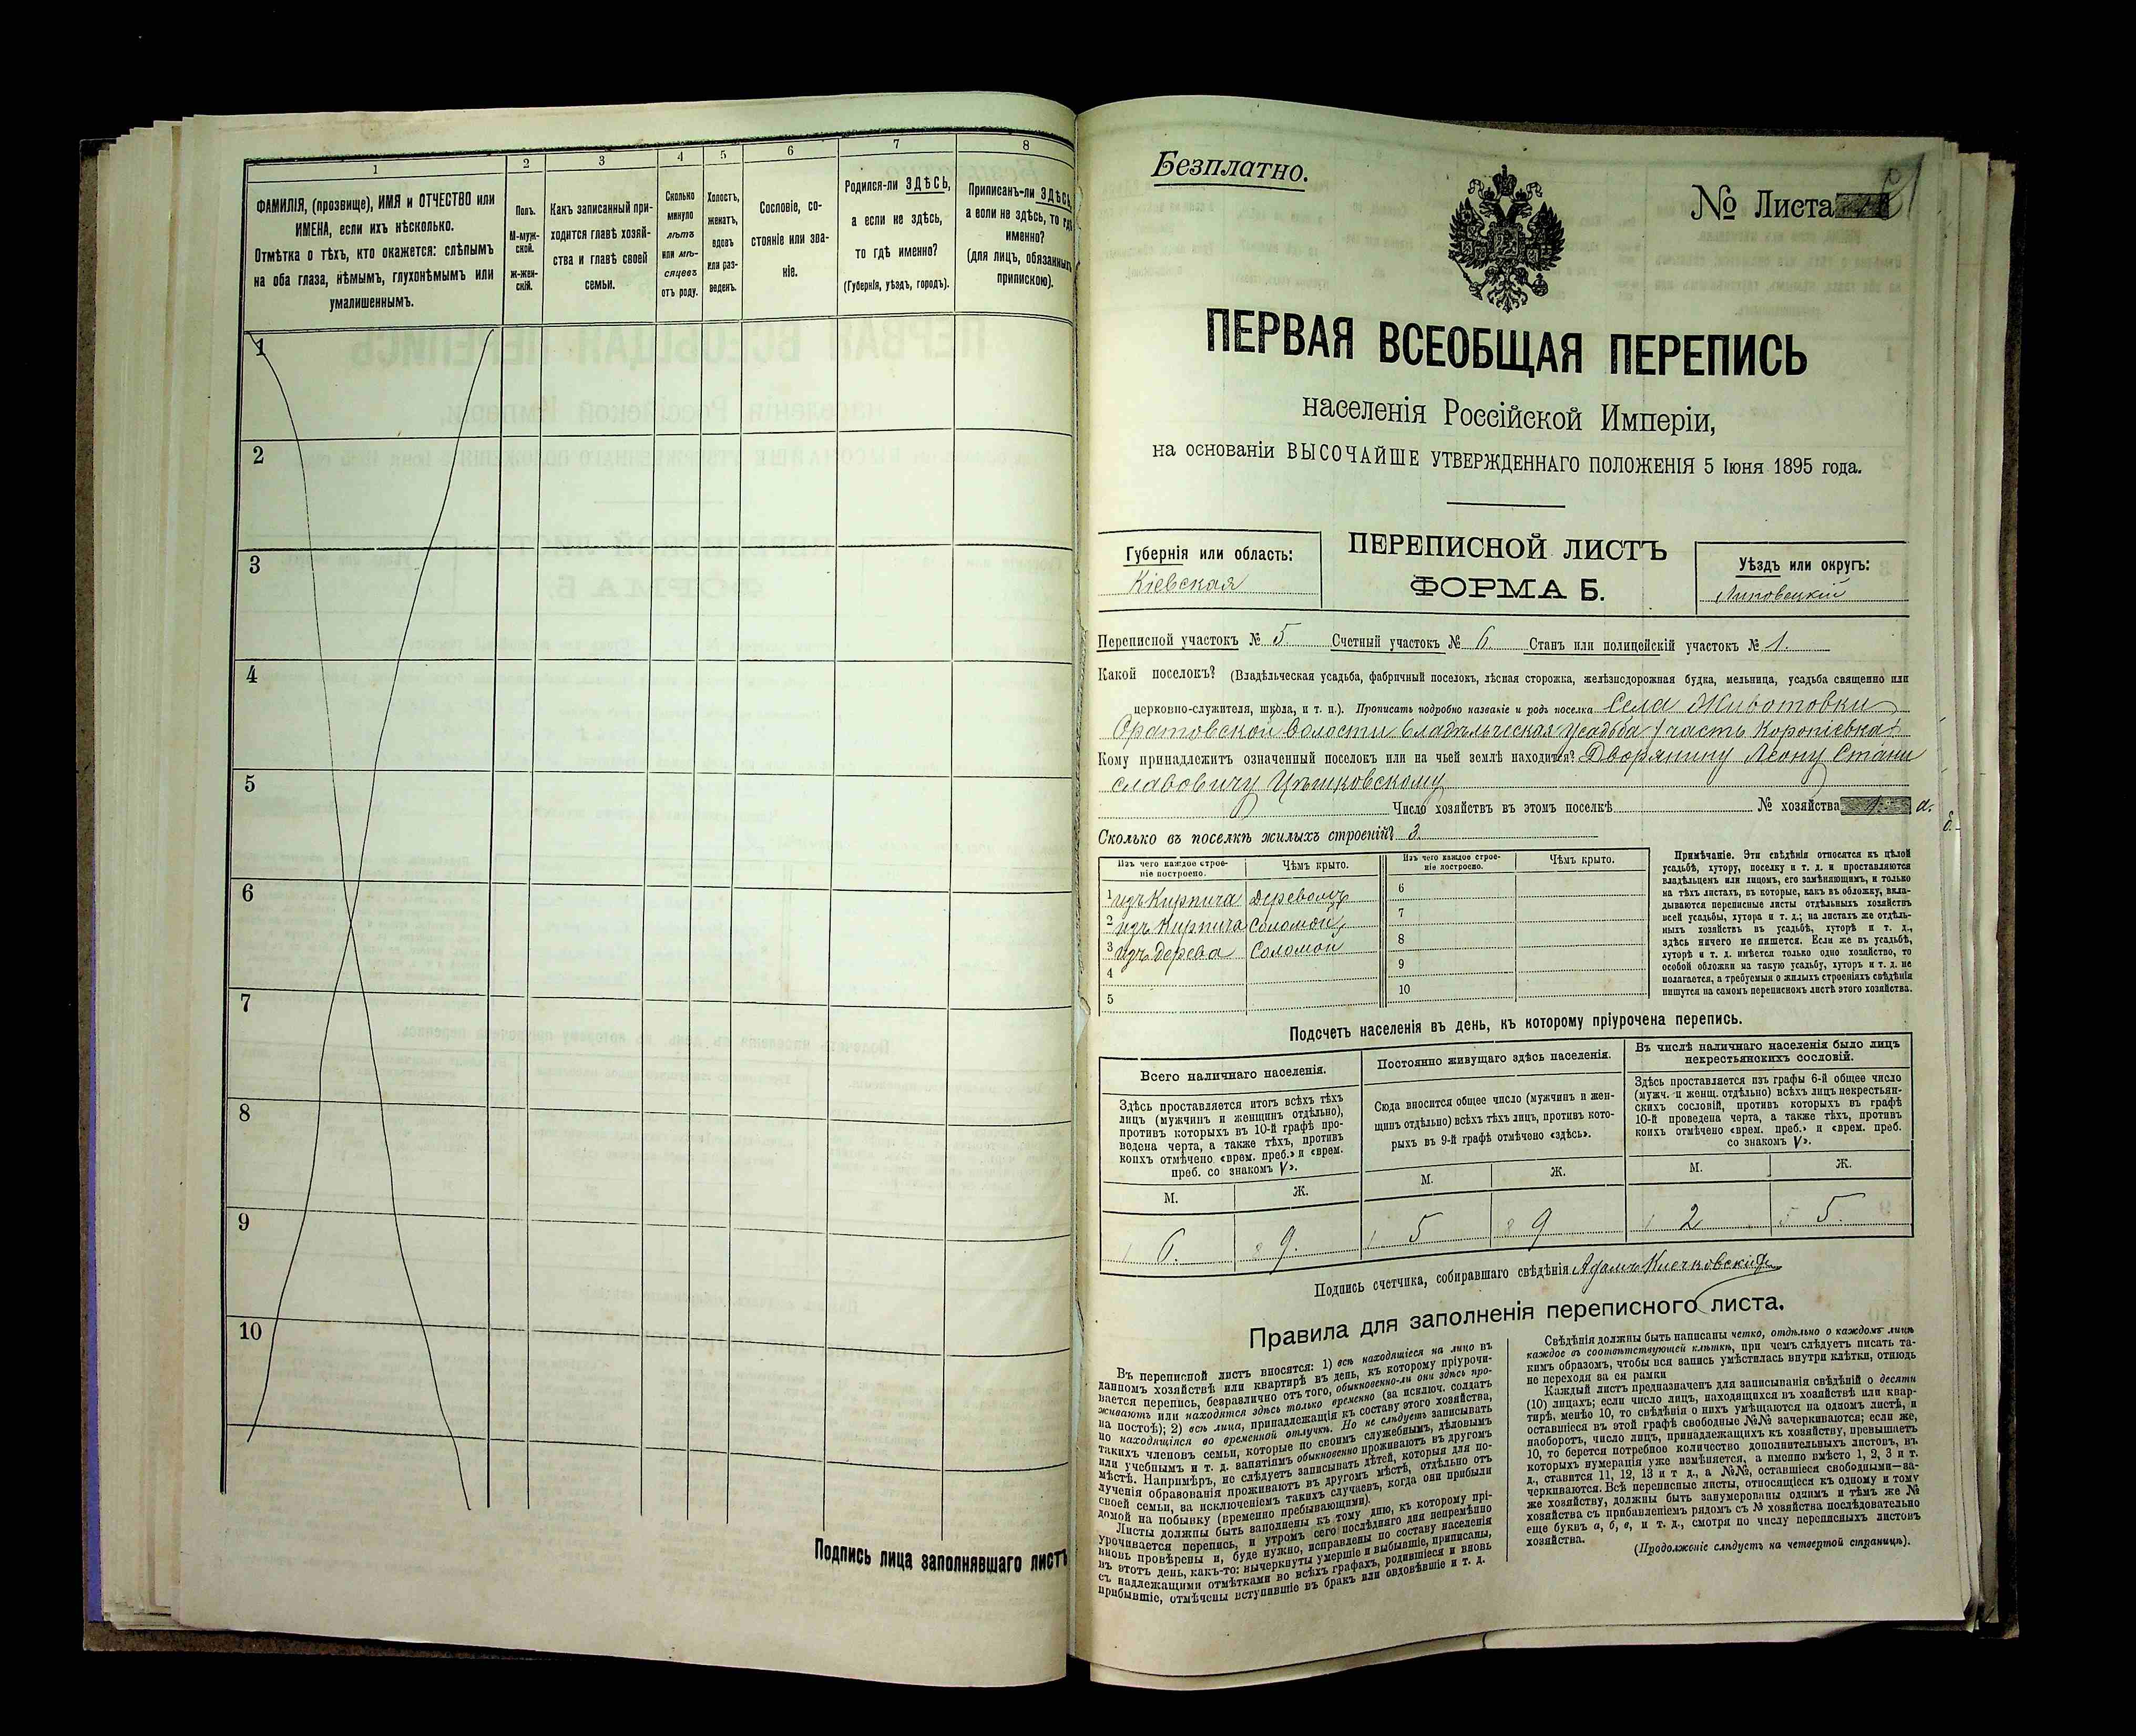 1
2
3
4
5
6
7
8
ФАМИЛІЯ, (прозвище), ИМЯ и ОТЧЕСТВО или
ИМЕНА, если ихъ нѣсколько.
Отмѣтка о тѣхъ, кто окажется: слѣпымъ
на оба глаза, нѣмымъ, глухонѣмымъ или
умалишеннымъ.
Полъ.
М-муж-
ской.
Ж-жен-
скій.
Какъ записанный при-
ходится главѣ хозяй-
ства и главѣ своей
семьи.
Сколько
минуло
лѣтъ
или мѣ-
сяцевъ
отъ роду.
Холостъ,
женатъ,
вдовъ
или раз-
веденъ.
Сословіе, со-
стояніе или зва-
ніе.
Родился-ли ЗДѢСЬ,
а если не здѣсь,
то гдѣ именно?
(Губернія, уѣздъ, городъ).
Приписанъ-ли ЗДѢСЬ,
а если не здѣсь, то гдѣ
именно?
(для лицъ, обязанныхъ
припискою).
1
2
3
4
5
6
7
8
9
10
Подпись лица заполнявшаго листъ
Безплатно.
№ Листа
ПЕРВАЯ ВСЕОБЩАЯ ПЕРЕПИСЬ
населенія Россійской Имперіи,
на основаніи ВЫСОЧАЙШЕ УТВЕРЖДЕННАГО ПОЛОЖЕНІЯ 5 Іюня 1895 года.
Губернія или область:
Кіевская
ПЕРЕПИСНОЙ ЛИСТЪ
ФОРМА Б.
Уѣздъ или округъ:
Липовецкій
Переписной участокъ № 5. Счетный участокъ № 6. Станъ или полицейскій участокъ № 1.
Какой поселокъ? (Владѣльческая усадьба, фабричный поселокъ, лѣсная сторожка, желѣзнодорожная будка, мельница, усадьба священно или
церковно-служителя, школа, и т. п.). Прописать подробно названіе и родъ поселка Села Животовки
Оратовской волости владѣльческая усадьба (часть Коропіевка)
Кому принадлежитъ означенный поселокъ или на чьей землѣ находится? Дворянину Леону Стани
славовичу Цѣшковскому
Число хозяйствъ въ этомъ поселкѣ № хозяйства 1. а.
Сколько въ поселкѣ жилыхъ строеній? 3.
Изъ чего каждое строе-
ніе построено.
Чѣмъ крыто.
Изъ чего каждое строе-
ніе построено.
Чѣмъ крыто.
1 изъ Кирпича Деревомъ
2 изъ Кирпича Соломой
3 изъ Дерева Соломой
4
5
6
7
8
9
10
Примѣчаніе. Эти свѣдѣнія относятся къ цѣлой
усадьбѣ, хутору, поселку и т. д. и проставляются
владѣльцемъ или лицомъ, его замѣняющимъ, и только
на тѣхъ листахъ, въ которые, какъ въ обложку, вкла-
дываются переписные листы отдѣльныхъ хозяйствъ
всей усадьбы, хутора и т. д.; на листахъ же отдѣль-
ныхъ хозяйствъ въ усадьбѣ, хуторѣ и т. д.,
здѣсь ничего не пишется. Если же въ усадьбѣ,
хуторѣ и т. д. имѣется только одно хозяйство, то
особой обложки на такую усадьбу, хуторъ и т. д. не
полагается, а требуемыя о жилыхъ строеніяхъ свѣдѣнія
пишутся на самомъ переписномъ листѣ этого хозяйства.
Подсчетъ населенія въ день, къ которому пріурочена перепись.
Всего наличнаго населенія.
Здѣсь проставляется итогъ всѣхъ тѣхъ
лицъ (мужчинъ и женщинъ отдѣльно),
противъ которыхъ въ 10-й графѣ про-
ведена черта, а также тѣхъ, противъ
коихъ отмѣчено «врем. преб.» и «врем.
преб. со знакомъ V».
М. Ж.
6. 9.
Постоянно живущаго здѣсь населенія.
Сюда вносится общее число (мужчинъ и жен-
щинъ отдѣльно) всѣхъ тѣхъ лицъ, противъ кото-
рыхъ въ 9-й графѣ отмѣчено «здѣсь».
М. Ж.
5 9
Въ числѣ наличнаго населенія было лицъ
некрестьянскихъ сословій.
Здѣсь проставляется изъ графы 6-й общее число
(мужч. и женщ. отдѣльно) всѣхъ лицъ некрестьян-
скихъ сословій, противъ которыхъ въ графѣ
10-й проведена черта, а также тѣхъ, противъ
коихъ отмѣчено «врем. преб.» и «врем. преб.
со знакомъ V».
М. Ж.
2 5.
Подпись счетчика, собиравшаго свѣдѣнія Адамъ Клечковскій
Правила для заполненія переписного листа.
Въ переписной листъ вносятся: 1) всѣ находящіеся на лицо въ
данномъ хозяйствѣ или квартирѣ въ день, къ которому пріурочи-
вается перепись, безразлично отъ того, обыкновенно-ли они здѣсь про-
живаютъ или находятся здѣсь только временно (за исключ. солдатъ
на постоѣ); 2) всѣ лица, принадлежащія къ составу этого хозяйства,
но находящіяся во временной отлучкѣ. Но не слѣдуетъ записывать
такихъ членовъ семьи, которые по своимъ служебнымъ, дѣловымъ
или учебнымъ и т. д. занятіямъ обыкновенно проживаютъ въ другомъ
мѣстѣ. Напримѣръ, не слѣдуетъ записывать дѣтей, которыя для по-
лученія образованія проживаютъ въ другомъ мѣстѣ, отдѣльно отъ
своей семьи, за исключеніемъ такихъ случаевъ, когда они прибыли
домой на побывку (временно пребывающими).
Листы должны быть заполнены къ тому дню, къ которому прі-
урочивается перепись, и утромъ сего послѣдняго дня непремѣнно
вновь провѣрены и, буде нужно, исправлены по составу населенія
въ этотъ день, какъ-то: вычеркнуты умершіе и выбывшіе, приписаны,
съ надлежащими отмѣтками во всѣхъ графахъ, родившіеся и вновь
прибывшіе, отмѣчены вступившіе въ бракъ или овдовѣвшіе и т. д.
Свѣдѣнія должны быть написаны четко, отдѣльно о каждомъ лицѣ
каждое въ соотвѣтствующей клѣткѣ, при чемъ слѣдуетъ писать та-
кимъ образомъ, чтобы вся запись умѣстилась внутри клѣтки, отнюдь
не переходя за ея рамки
Каждый листъ предназначенъ для записыванія свѣдѣній о десяти
(10) лицахъ; если число лицъ, находящихся въ хозяйствѣ или квар-
тирѣ, менѣе 10, то свѣдѣнія о нихъ умѣщаются на одномъ листѣ, и
оставшіеся въ этой графѣ свободные №№ зачеркиваются; если же,
наоборотъ, число лицъ, принадлежащихъ къ хозяйству, превышаетъ
10, то берется потребное количество дополнительныхъ листовъ, въ
которыхъ нумерація уже измѣняется, а именно вмѣсто 1, 2, 3 и т.
д., ставится 11, 12, 13 и т д., а №№, оставшіеся свободными—за-
черкиваются. Всѣ переписные листы, относящіеся къ одному и тому
же хозяйству, должны быть занумерованы однимъ и тѣмъ же №
хозяйства съ прибавленіемъ рядомъ съ № хозяйства послѣдовательно
еще буквъ а, б, в, и т. д., смотря по числу переписныхъ листовъ
хозяйства.
(Продолженіе слѣдуетъ на четвертой страницѣ).